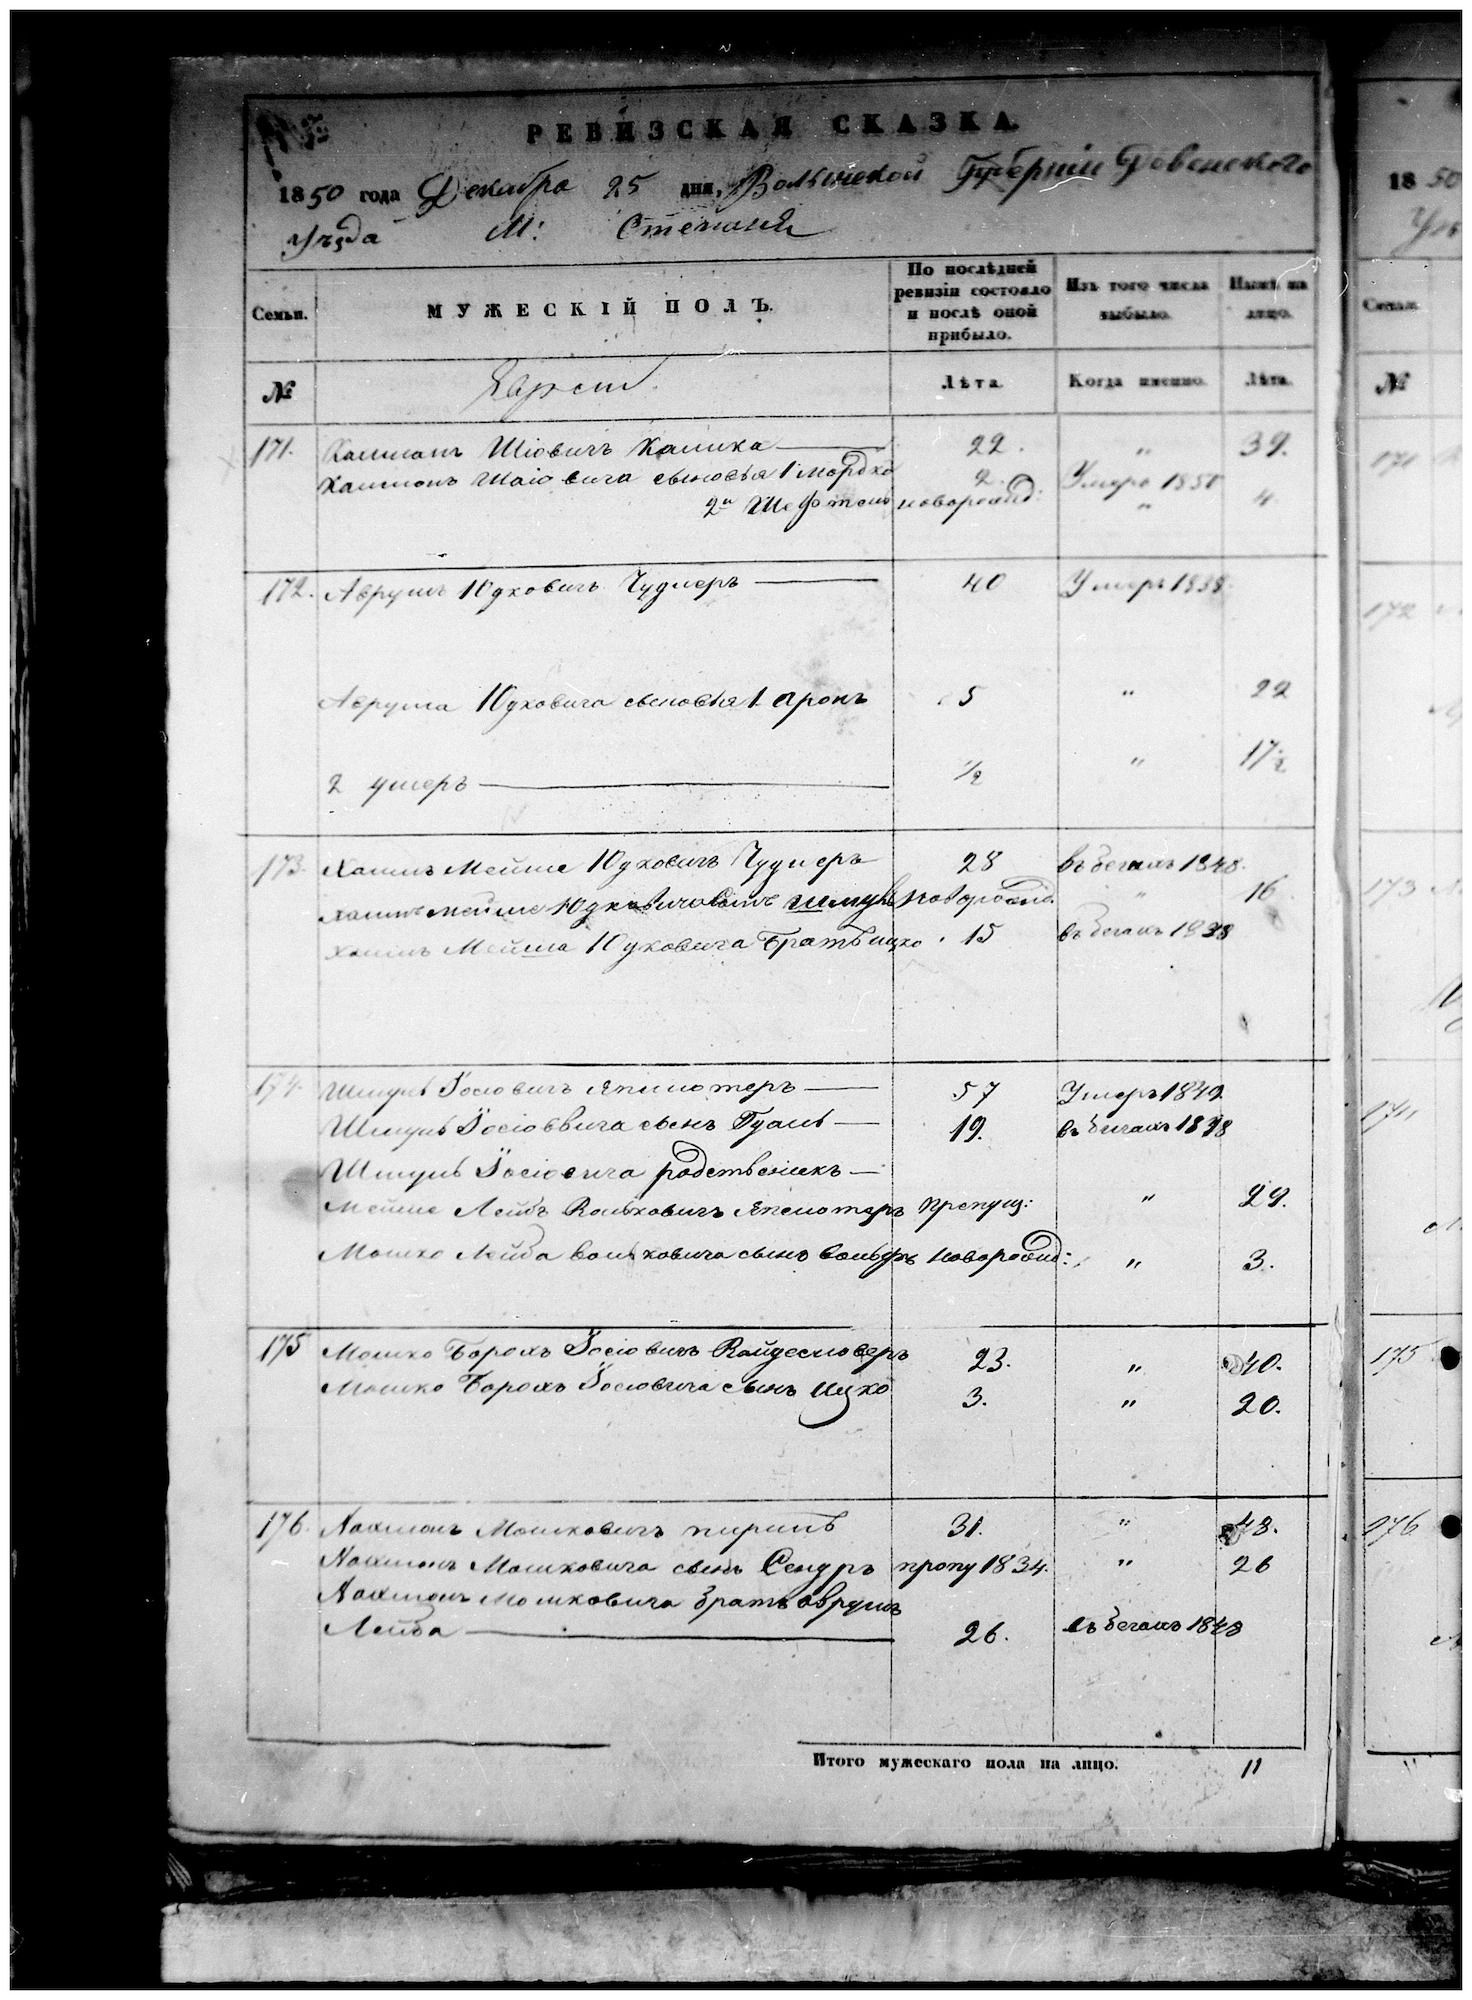 РЕВИЗСКАЯ СКАЗКА.
1850 года Декабра 25 дня, Волынской Губернiи Ровенского
Уѣзда М: Степаня
Семьи. МУЖЕСКIЙ ПОЛЪ. По послѣдней ревизiи состояло и послѣ оной прибыло. Изъ того числа выбыло. Нынѣ на лицо.
№ Евреи Лѣта. Когда именно. Лѣта.
171. Шiовичъ 22. " 39.
Шаiовича сыновья 1 Мордко 2. Умеръ 1850
2й новорожд: " 4
172. Аврумъ Юдковичъ Чудлеръ 40 Умеръ 1838.
Аврума Юдковича сыновья 1. Аронъ 5 " 22
2 умеръ 1/2 " 17 1/2
173. Хаимъ Мейше Юдковичъ Чудлеръ 28 въ бегахъ 1848.
Хаимъ Мейше Юдковича сынъ Шмуль новорожд. " 16
Хаимъ Мейша Юдковича братъ Ицко 15 въ бегахъ 1838
174. Шмуль Iосiовичъ 57 Умеръ 1849
Шмуль Iосiовича сынъ 19. въ бегахъ 1838
Шмуль Iосiовича родственикъ
Мейше Лейбъ Вольковичъ пропущ: " 29.
Мошко Лейба Вольковича сынъ новорожд: " 3.
175 Мошко Борохъ Iосiовичъ 23. " 40.
Мошко Борохъ Iосiовича сынъ Ицко 3. " 20.
176. Нахманъ Мошковичъ 31. " 48.
Нахманъ Мошковича сынъ Сендръ пропу 1834. " 26
Нахманъ Мошковича братъ Аврумъ
Лейба 26. въ бегахъ 1848
Итого мужескаго пола на лицо. 11
18 50
Семьи.
№
171
172
173
174
175
176